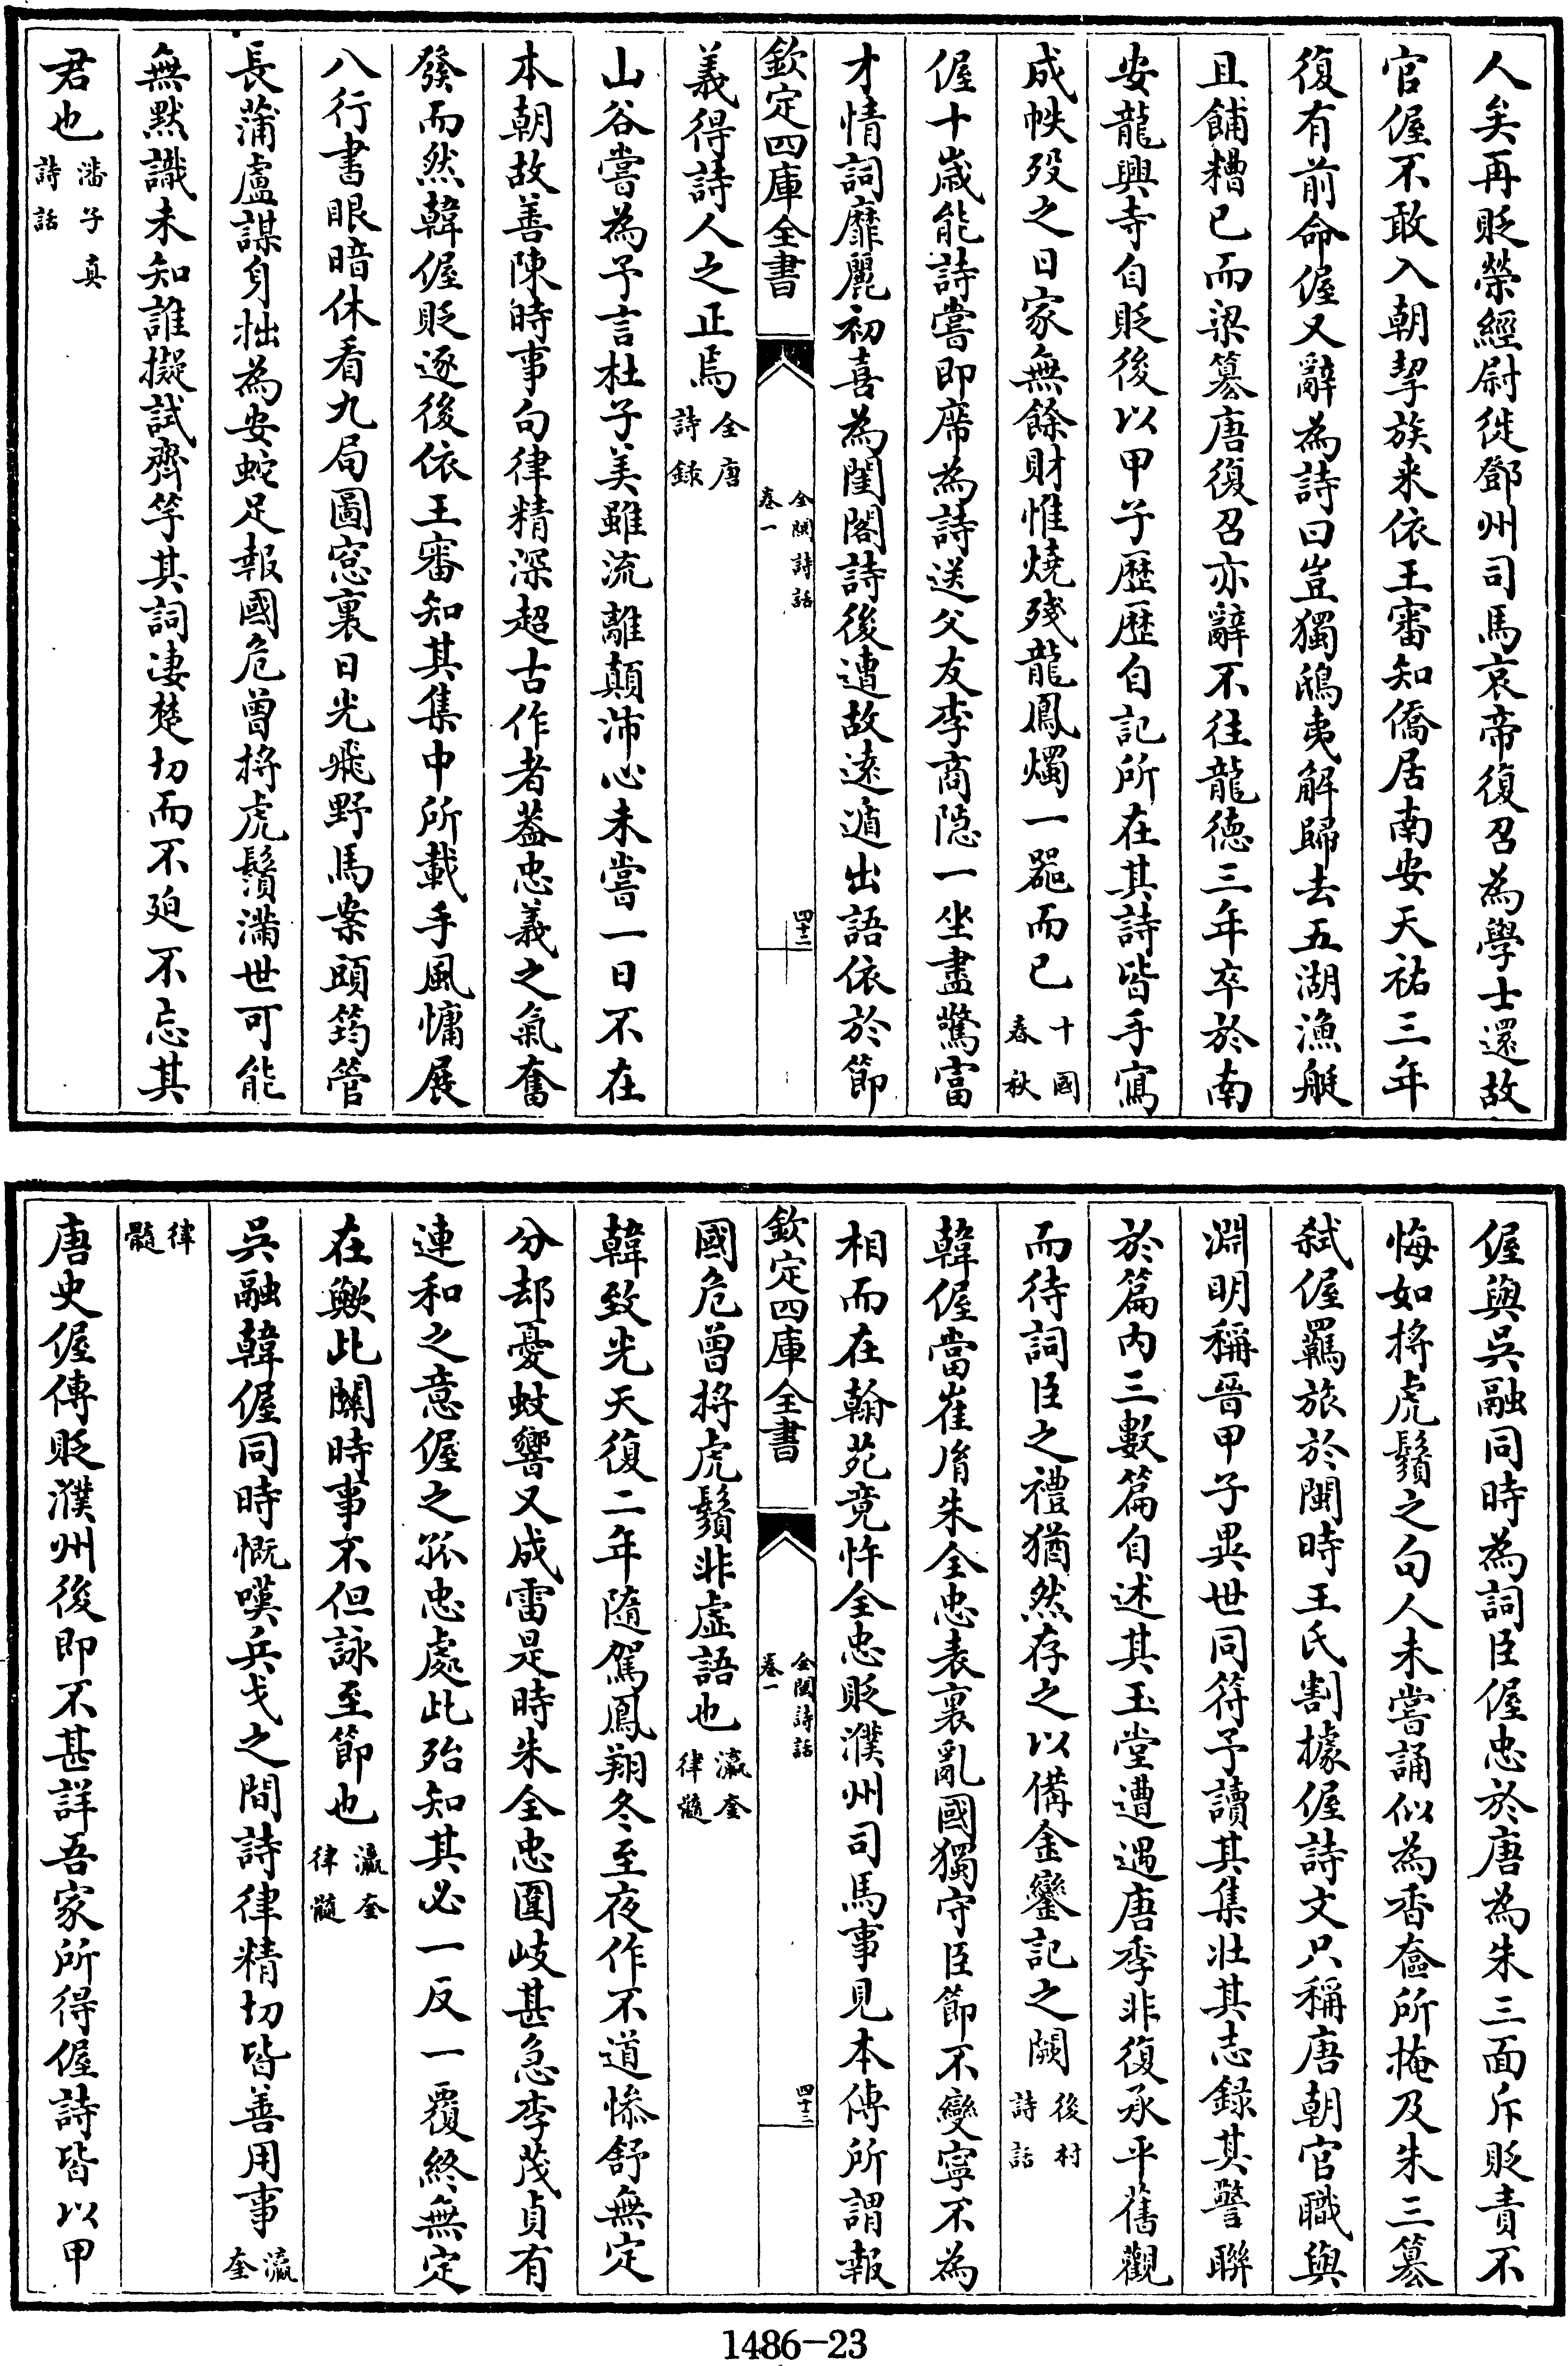 人矣再貶榮經尉徙鄧州司馬哀帝復召為學士還故
官偓不敢入朝挈族来依王審知僑居南安天祐三年
復有前命偓又辭為詩曰豈獨鴟夷解歸去五湖漁艇
且餔糟已而梁篡唐復召亦辭不往龍德三年卒於南
安龍興寺自貶後以甲子歷歷自記所在其詩皆手寫
成帙歿之日家無餘財惟燒殘龍鳳燭一器而已十國春秋
偓十歲能詩嘗即席為詩送父友李商隠一坐盡驚富
才情詞靡麗初喜為閨閣詩後遭故遠遁出語依於節
欽定四庫全書
全閩詩話
卷一
四十二
義得詩人之正焉全唐詩錄
山谷嘗為予言杜子美雖流離顛沛心未嘗一日不在
本朝故善陳時事句律精深超古作者葢忠義之氣奮
發而然韓偓貶逐後依王審知其集中所載手風慵展
八行書眼暗休看九局圖窓裏日光飛野馬案頭筠管
長蒲盧謀身拙為安蛇足報國危曾捋虎鬚滿世可能
無黙識未知誰擬試齊竽其詞凄楚切而不廹不忘其
君也潘子真詩話
偓與吳融同時為詞臣偓忠於唐為朱三面斥貶責不
悔如捋虎鬚之句人未嘗誦似為香奩所掩及朱三篡
弑偓羈旅於閩時王氏割據偓詩文只稱唐朝官職與
淵明稱晉甲子異世同符予讀其集壯其志錄其警聯
於篇内三數篇自述其玉堂遭遇唐季非復承平舊觀
而待詞臣之禮猶然存之以備金鑾記之闕後村詩話
韓偓當崔胤朱全忠表裏亂國獨守臣節不變寧不為
相而在翰苑竟忤全忠貶濮州司馬事見本傳所謂報
欽定四庫全書
全閩詩話
卷一
四十三
國危曾捋虎鬚非虛語也瀛奎律髓
韓致光天復二年隨駕鳳翔冬至夜作不道慘舒無定
分却憂蚊響又成雷是時朱全忠圍岐甚急李茂貞有
連和之意偓之孤忠處此殆知其必一反一覆終無定
在歟此關時事不但詠至節也瀛奎律髓
吳融韓偓同時慨嘆兵戈之間詩律精切皆善用事瀛奎
律髓
唐史偓傳貶濮州後即不甚詳吾家所得偓詩皆以甲
1486-23